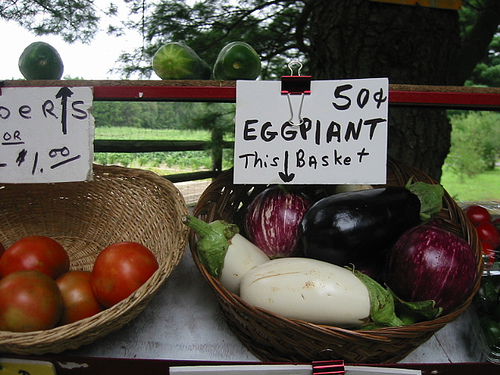 OERS
OR
$1.00
50¢
EGGPLANT
This BASKET